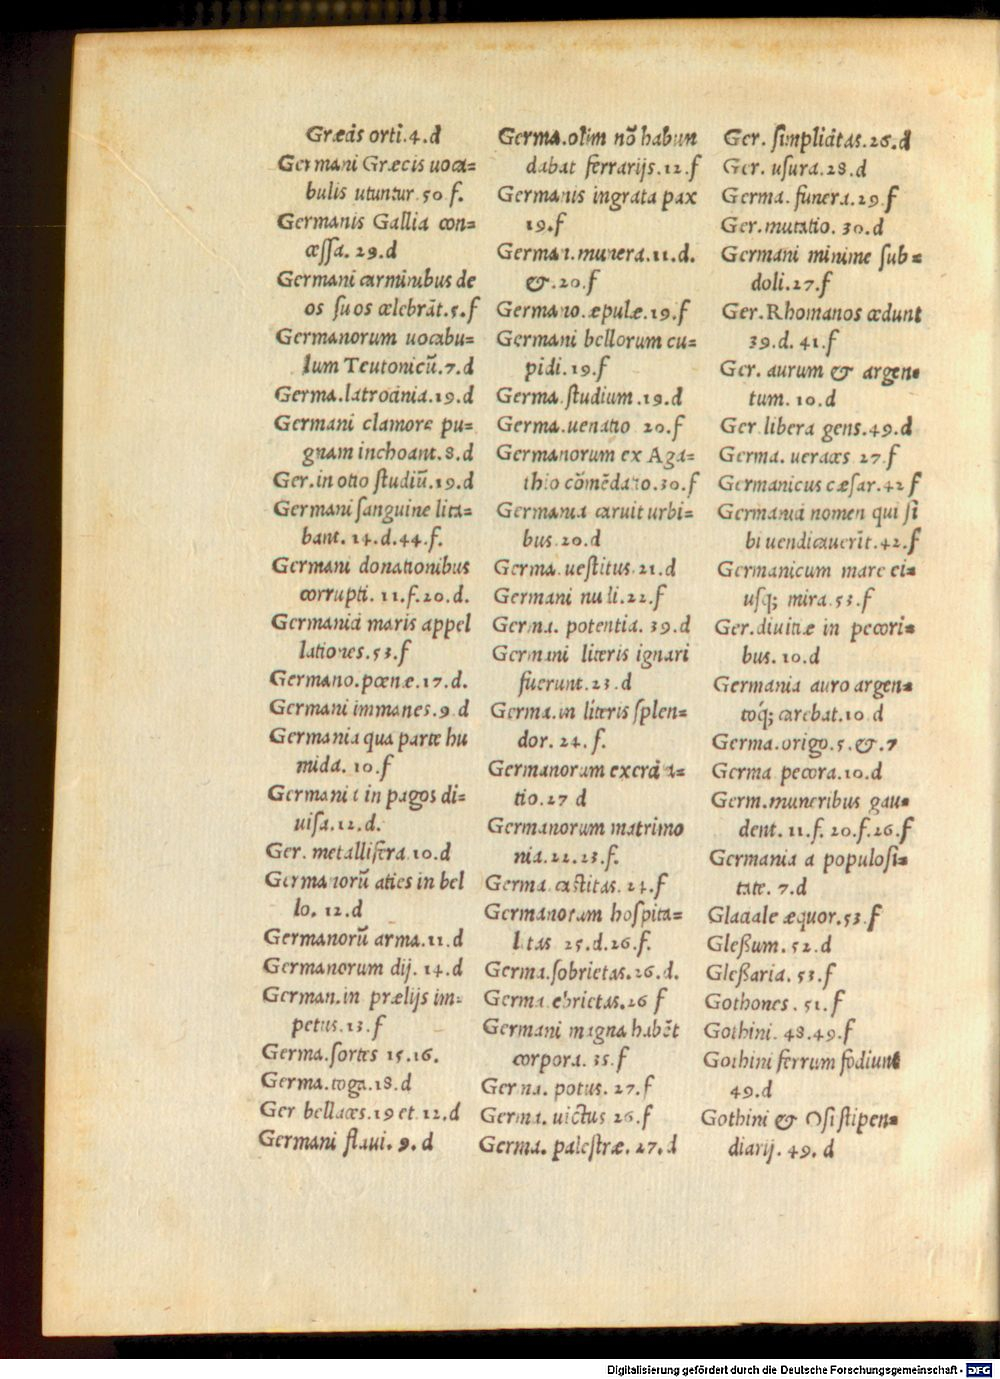 Græcis orti.4.d
Germani Græcis uoca=
bulis utuntur.50 f.
Germanis Gallia con=
cessa. 29.d
Germani carminibus de
os suos celebrāt.5.f
Germanorum uocabu=
lum Teutonicū.7.d
Germa.latrocinia.19.d
Germani clamore pu=
gnam inchoant.8.d
Ger.in otio studiū.19.d
Germani sanguine lita=
bant. 14.d.44.f.
Germani donationibus
corrupti. 11.f.20.d.
Germanici maris appel
lationes.53.f
Germano.pœnæ.17.d.
Germani immanes.9 d
Germania qua parte hu
mida. 10.f
Germani i in pagos di=
uisa.12.d.
Ger. metallifera 10.d
Germanorū acies in bel
lo. 12.d
Germanorū arma.11.d
Germanorum dij. 14.d
German.in prælijs im=
petus.13.f
Germa.sortes 15.16.
Germa.toga.18.d
Ger bellaces.19 et.12.d
Germani flaui. 9. d
Germa.olim nō habun
dabat ferrarijs.12.f
Germanis ingrata pax
19.f
Germa1.munera.11.d.
&.20.f
Germano.æpulæ.19.f
Germani bellorum cu=
pidi.19.f
Germa.studium.19.d
Germa.uenatio 20.f
Germanorum ex Aga=
thio cōmēdatio.30.f
Germania caruit urbi=
bus.20.d
Germa.uestitus.21.d
Germani nudi.22.f
Germa. potentia. 39.d
Germani literis ignari
fuerunt.23.d
Germa.in literis splen=
dor. 24. f.
Germanorum exercita=
tio.27 d
Germanorum matrimo
nia.22.23.f.
Germa castitas. 24.f
Germanorum hospita=
litas 25.d.26.f.
Germa.sobrietas.26.d.
Germa ebrietas.26 f
Germani magna habēt
corpora. 35.f
Germa. potus. 27.f
Germa. uictus 26.f
Germa. palestræ. 27.d
Ger. simplicitas.26.d
Ger. usura.28.d
Germa. funera.29.f
Ger.mutatio. 30.d
Germani minime sub=
doli.27.f
Ger.Rhomanos cedunt
39.d. 41.f
Ger. aurum & argen=
tum. 10.d
Ger.libera gens.49.d
Germa. ueraces 27.f
Germanicus cæsar.42 f
Germanici nomen qui si
bi uendicauerīt.42.f
Germanicum mare ei=
usq; mira.53.f
Ger.diuitiæ in pecori=
bus. 10.d
Germania auro argen=
toq́; carebat.10 d
Germa.origo.5.&.7
Germa pecora.10.d
Germ.muneribus gau=
dent. 11.f. 20.f.26.f
Germania a populosi=
tate. 7.d
Glaciale æquor.53.f
Gleßum. 52.d
Gleßaria. 53.f
Gothones. 51.f
Gothini. 48.49.f
Gothini ferrum fodiunt
49.d
Gothini & Osi stipen=
diarij. 49. d
Digitalisierung gefördert durch die Deutsche Forschungsgemeinschaft - DFG